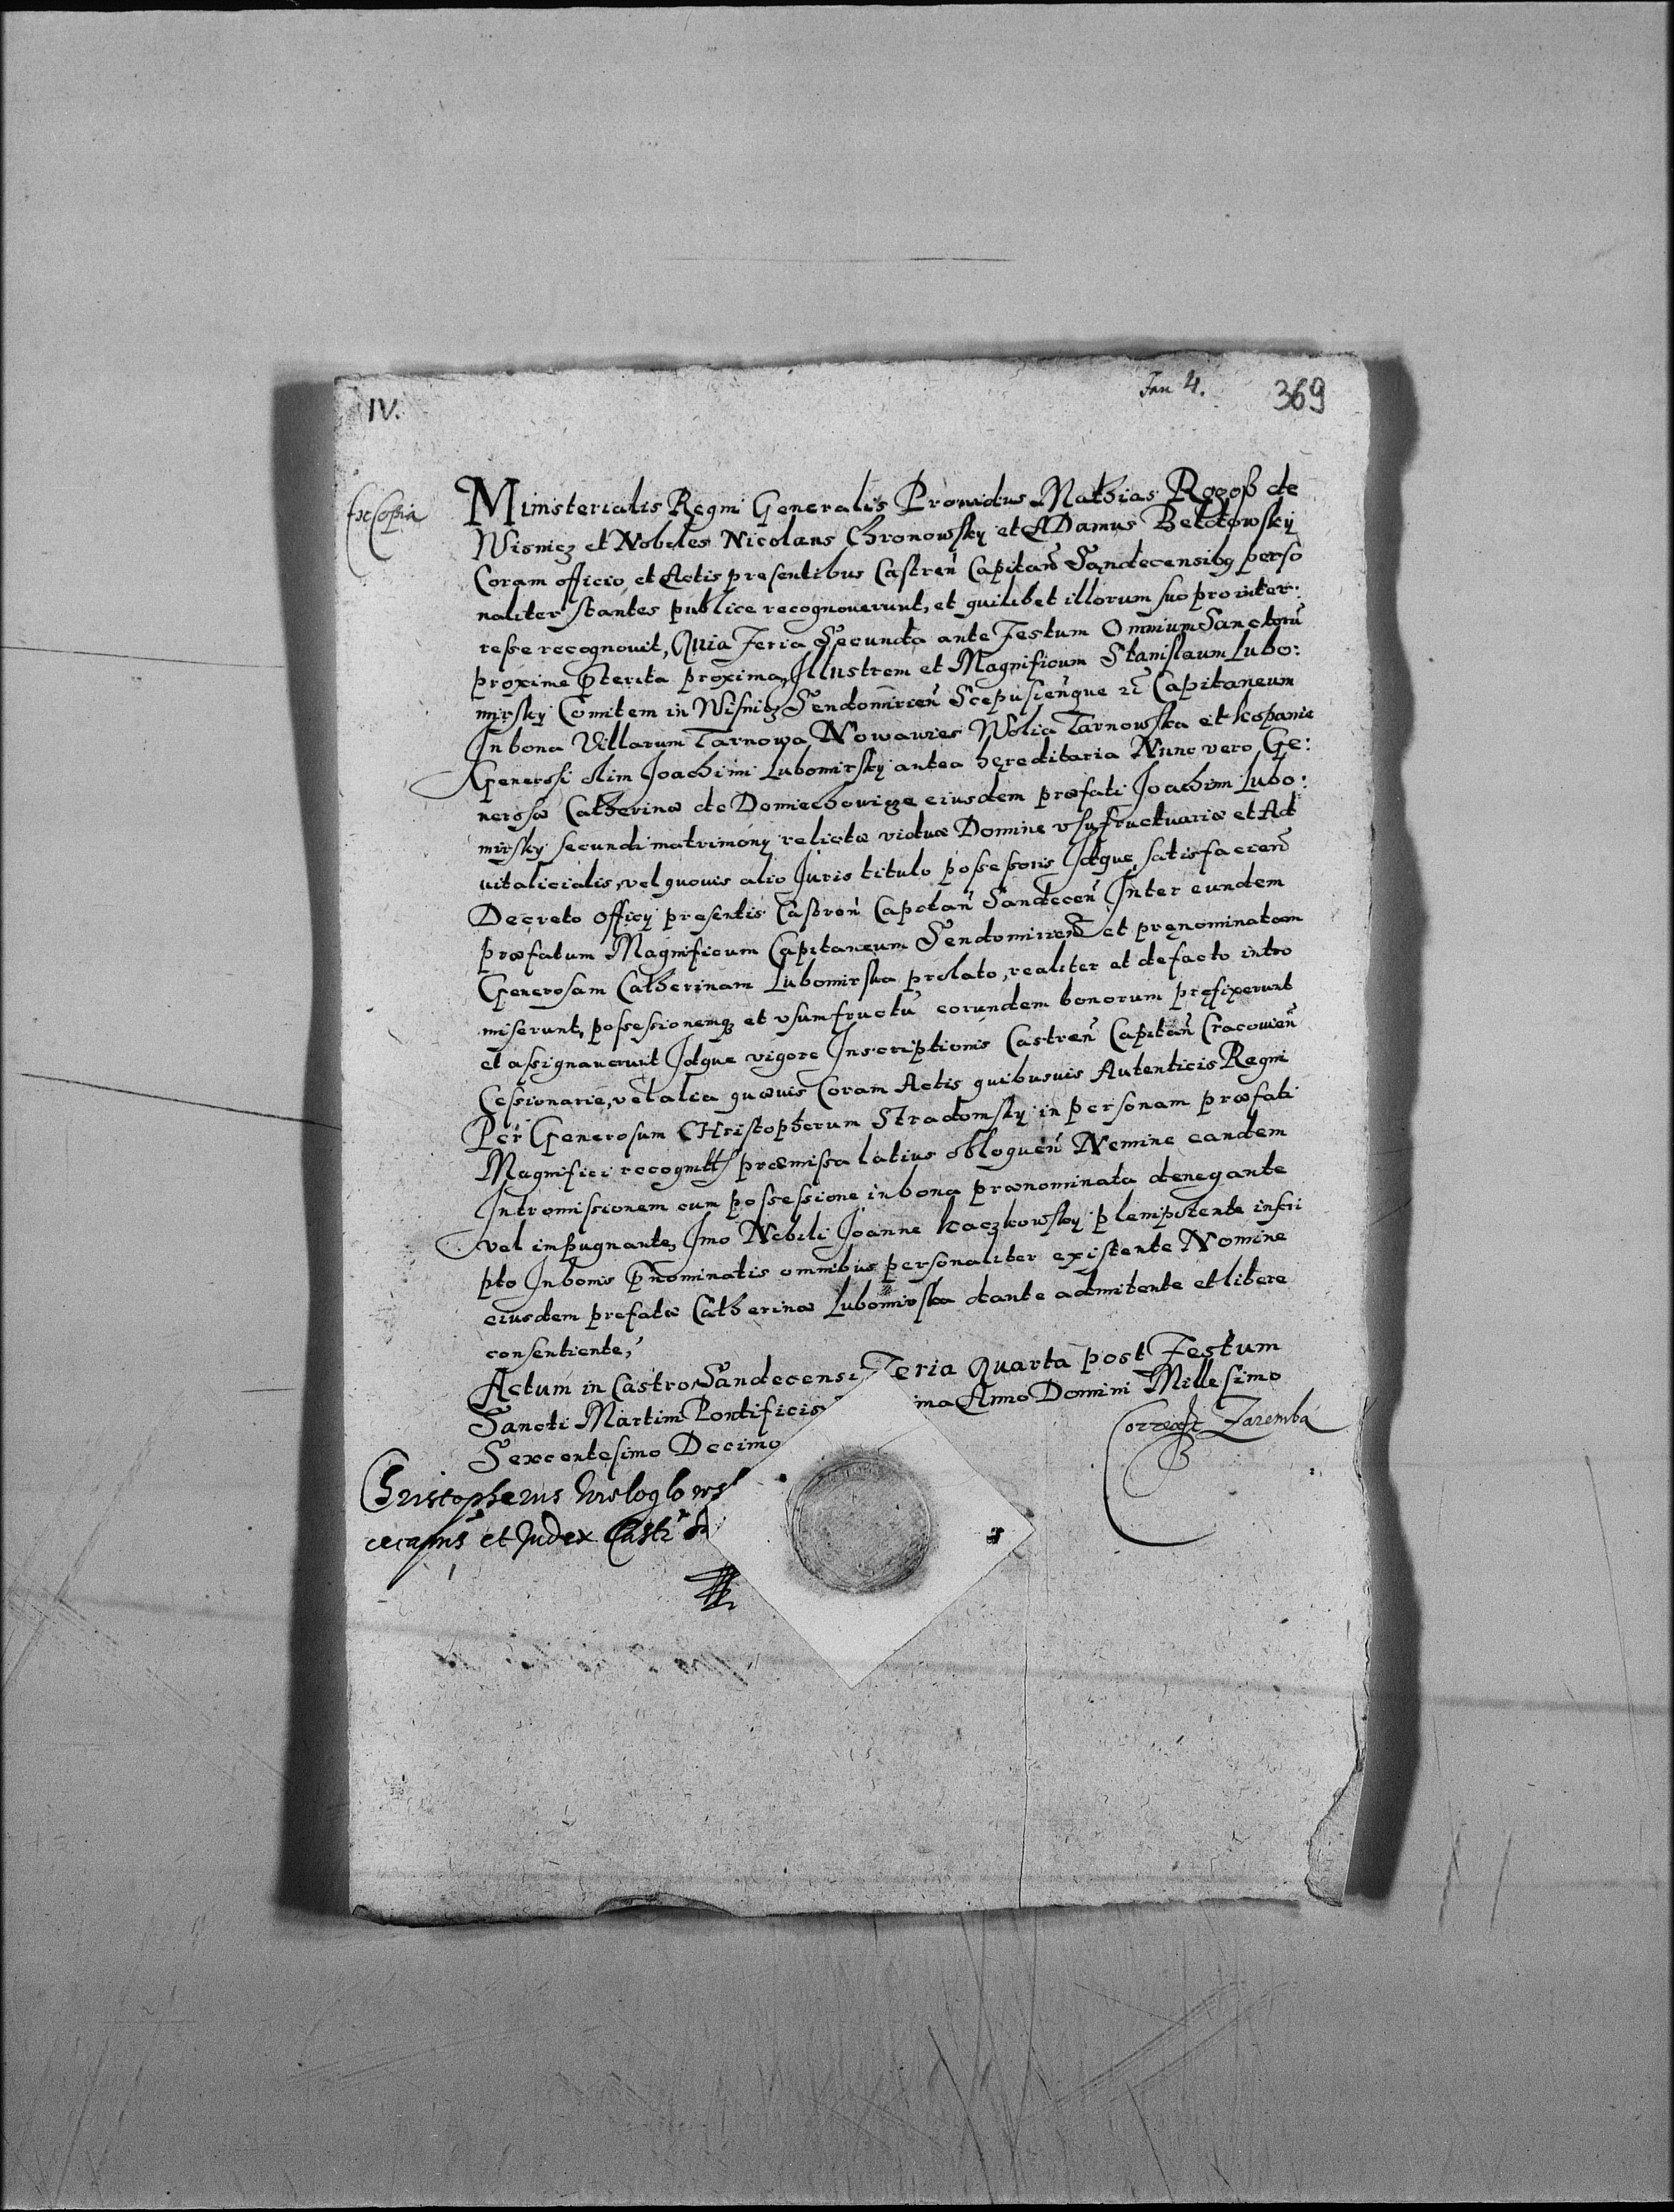 IV.
Fan 4.
369
Ex Copia
Ministerialis Regni Generalis Providus Mathias Rogoß de
Wisnicz et Nobeles Nicolaus Chronowsky et ADamus Beldowsky
Coram officio et Actis presentibus Castren Capitan Sandecensibq perso
naliter stantes publice recognoverunt, et quilibet illorum suo pro inter:
resse recognovit, Quia Feria Secunda ante Festum Omnium Sanctoru
proxime pterita proxima, Illustrem et Magnificum Stanislaum Lubo:
mirsky Comitem in Wisnicz Sendomirien Scepusienque Capitaneum
In bona Villarum Tarnowa Nowawies Wolia Tarnowska et kospanie
Generosi olim Joachimi Lubomirsky antea hereditaria Nunc vero Ge:
nerosæ Catherinæ de Domiechowicze eiusdem præfati Joachimi Lubo:
mirsky secundi matrimony relictæ viduæ Domine vsufructuariæ et Ad
uitalicialis, vel quovis alio Juris titulo possessoris Idque satisfacien
Decreto officy presentis Castren Capitan Sandecen Inter eundem
præfatum Magnificum Capitaneum Sendomirien et prenominatam
Generosam Catherinam Lubomirska prolato, realiter et defacto intro
miserunt, possessionemq et vsumfructu eorundem bonorum prefixerunt
et assignaverunt Idque vigore Inscriptionis Castren Capitan Cracovien
Cessionarie, vel alia quævis Coram Actis quibusvis Autenticis Regni
Per Generosum CHristopherum Stradomsky in personam præfati
Magnifici præmissa latius obloquen Nemine eandem
Intromissionem cum possessione in bona prænominata denegante
vel impugnante, Imo Nobili Joanne kaczkowsky plenipotente inscri
pto In bonis pnominatis omnibus personaliter existente Nomine
eiusdem prefatæ Catherinæ Lubomirska dante admitente et libere
consentiente,
Actum in Castro Sandecensi Feria Quarta post Festum
Sancti Martini Pontificis ma Anno Domini Millesimo
Sexcentesimo Decimo
Correxit Zaremba
Christopherus Wieloglows
et Judex Castr